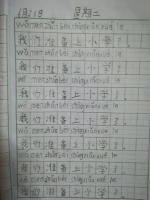 1月21日 星期二
wǒ men zhǔn bèi shàng xiǎo xué le
我们准备上小学了。
wǒ men zhǔn bèi shàng xiǎo xué le
我们准备上小学了。
wǒ men zhǔn bèi shàng xiǎo xué le
我们准备上小学了。
wǒ men zhǔn bèi shàng xiǎo xué le
我们准备上小学了。
wǒ men zhǔn bèi shàng xiǎo xué le
我们准备上小学了。
wǒ men zhǔn bèi shàng xiǎo xué le
我们准备上小学了。
wǒ men zhǔn bèi shàng xiǎo xué le
我们准备上小学了。